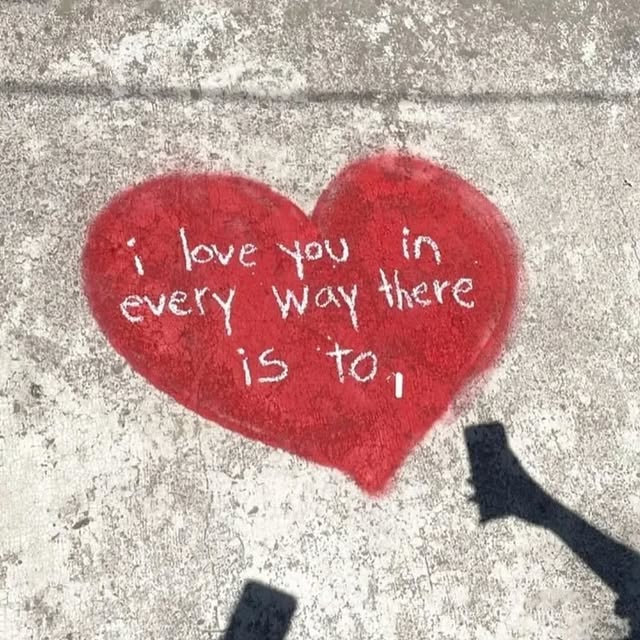 i love you in
every way there
is to,